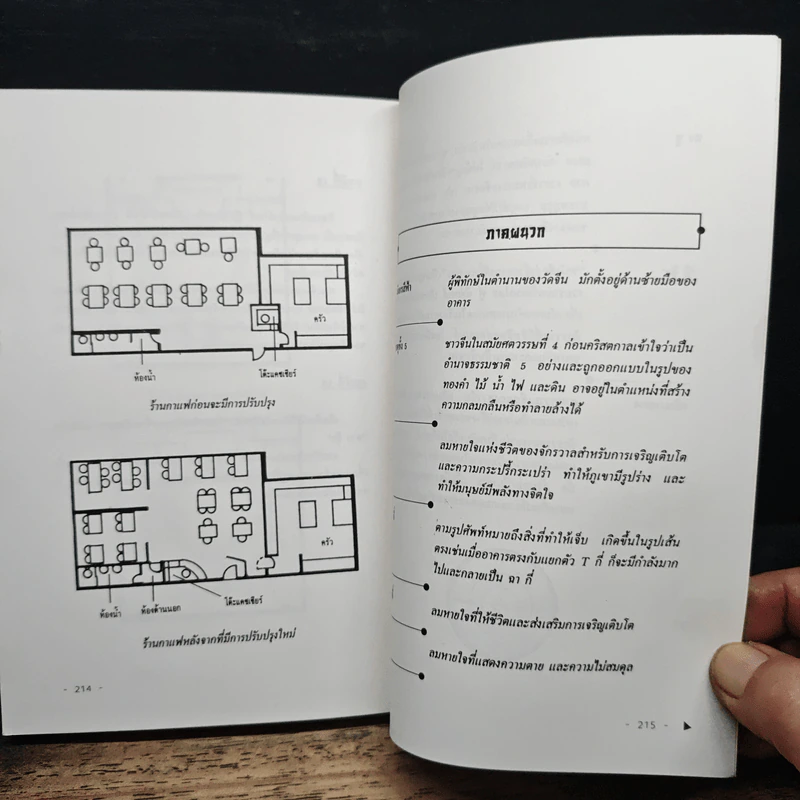 ครัว
ห้องน้ำ
โต๊ะแคชเชียร์
ร้านกาแฟก่อนจะมีการปรับปรุง
ครัว
ห้องน้ำ
ห้องด้านนอก
โต๊ะแคชเชียร์
ร้านกาแฟหลังจากที่มีการปรับปรุงใหม่
- 214 -
ภาคผนวก
ผู้พิทักษ์ในตำนานของวัดจีน มักตั้งอยู่ด้านซ้ายมือของ
อาคาร
ชาวจีนในสมัยศตวรรษที่ 4 ก่อนคริสตกาลเข้าใจว่าเป็น
อำนาจธรรมชาติ 5 อย่างและถูกออกแบบในรูปของ
ทองคำ ไม้ น้ำ ไฟ และดิน อาจอยู่ในตำแหน่งที่สร้าง
ความกลมกลืนหรือทำลายล้างได้
ลมหายใจแห่งชีวิตของจักรวาลสำหรับการเจริญเติบโต
และความกระปรี้กระเปร่า ทำให้ภูเขามีรูปร่าง และ
ทำให้มนุษย์มีพลังทางจิตใจ
ตามรูปศัพท์หมายถึงสิ่งที่ทำให้เจ็บ เกิดขึ้นในรูปเส้น
ตรงเช่นเมื่ออาคารตรงกับแยกตัว T กี่ ก็จะมีกำลังมาก
ไปและกลายเป็น ฉา กี่
ลมหายใจที่ให้ชีวิตและส่งเสริมการเจริญเติบโต
ลมหายใจที่แสดงความตาย และความไม่สมดุล
- 215 -